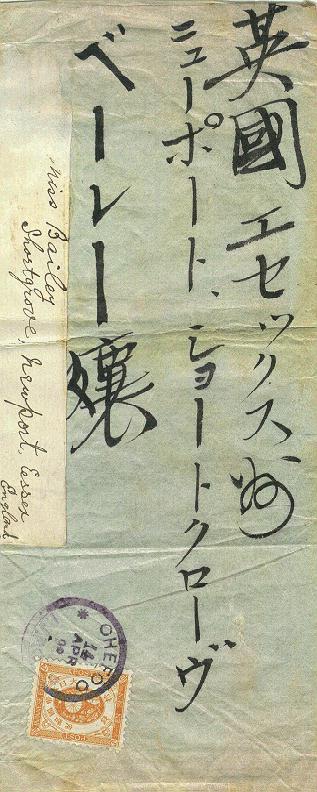 英國エセックス州
ニューポート、ショートクローヴ
ベーレー嬢
Miss Bailey
Shortgrove, Newport, Essex
England
CHEFOO
APR